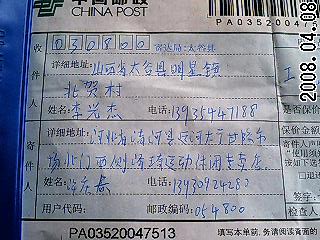 中国邮政
CHINA POST
PA03520047513
2008.04.08
收件人
030800 寄达局:太谷县
详细地址:山西省太谷县明星镇
北贺村
姓名:李光杰 电话:13935447188
是否保价
保价金额
寄件人
详细地址:河北省清河县运河大厅世纪市
场北门西侧 运动休闲专卖店
电话:13930924250
用户代码: 邮政编码:054800
签字:
检查人
PA03520047513 填写本单前,务请阅读背面